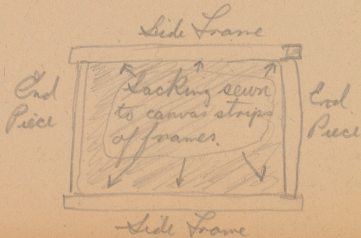 Side Frame
End
Piece
Sacking sewn
to canvas strips
of frames.
End
Piece
Side Frame